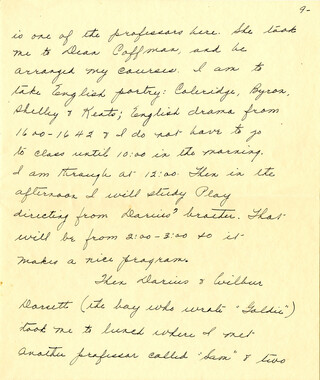 9-
is one of the professors here. She took
me to Dean Coffman, and he
arranged my courses. I am to
take English poetry: Coleridge, Byron,
Shelley & Keats; English drama from
1600-1642 & I do not have to go
to class until 10:00 in the morning.
I am through at 12:00. Then in the
afternoon I will study Play
directing from Darius' brother. That
will be from 2:00-3:00 so it
makes a nice program.
Then Darius & Wilbur
Dorsett (the boy who wrote "Goldie")
took me to lunch where I met
another professor called "Sam" & two